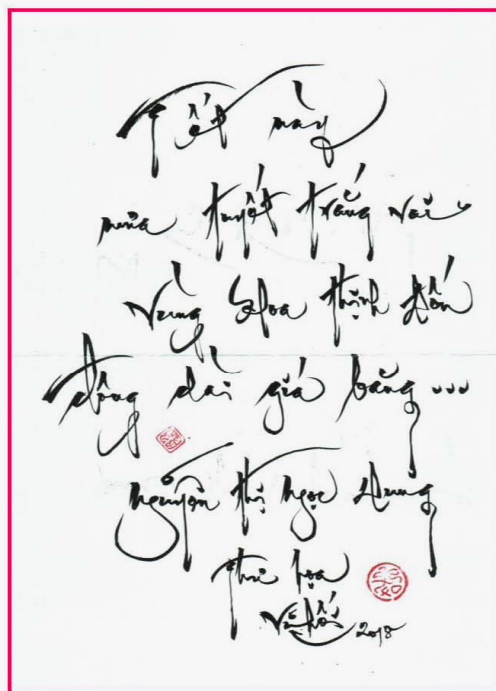 Tết này
mưa tuyết trắng rơi
Vùng Hoa thịnh đốn
đông dài giá băng...
Nguyễn thị Ngọc Dung
thư họa
Vũ Hối 2018